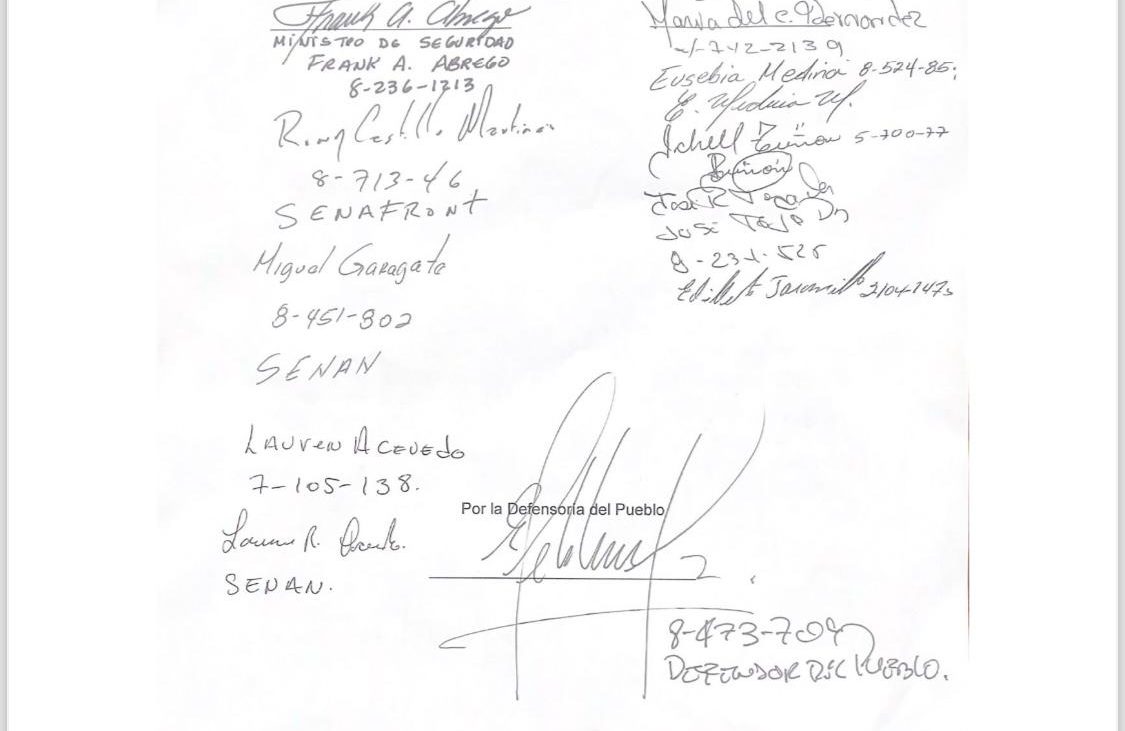 Frank A. Abrego
MINISTRO DE SEGURIDAD
FRANK A. ABREGO
8-236-1213
Castillo Martinez
8-713-46
SENAFRONT
Miguel Garagate
8-451-802
SENAN
LAUREN ACEVEDO
7-105-138.
R.
SENAN.
Maria del C. Hernandez
4-742-2139
Eusebia Medina 8-524-85
E. Medina M.
Ichell Tuñon 5-700-77
Tuñón
José R
José
9-231-525
Jaramillo 2/04-1473
Por la Defensoría del Pueblo
8-473-709
DEFENSOR DEL PUEBLO.